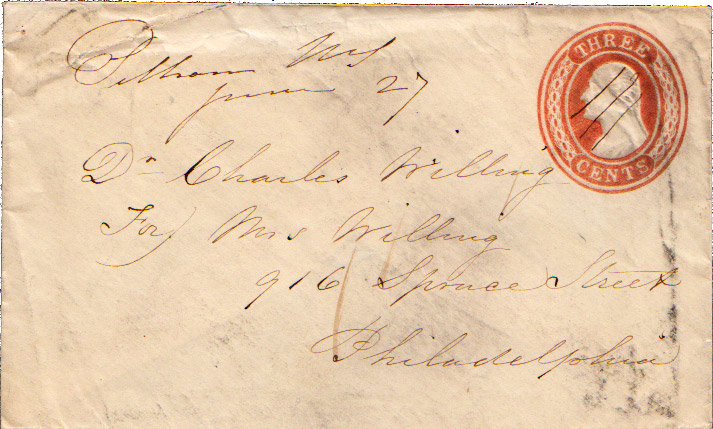 Pelham NY
June 27
THREE
CENTS
Dr Charles Willing
For Mrs Willing
916 Spruce Street
Philadelphia